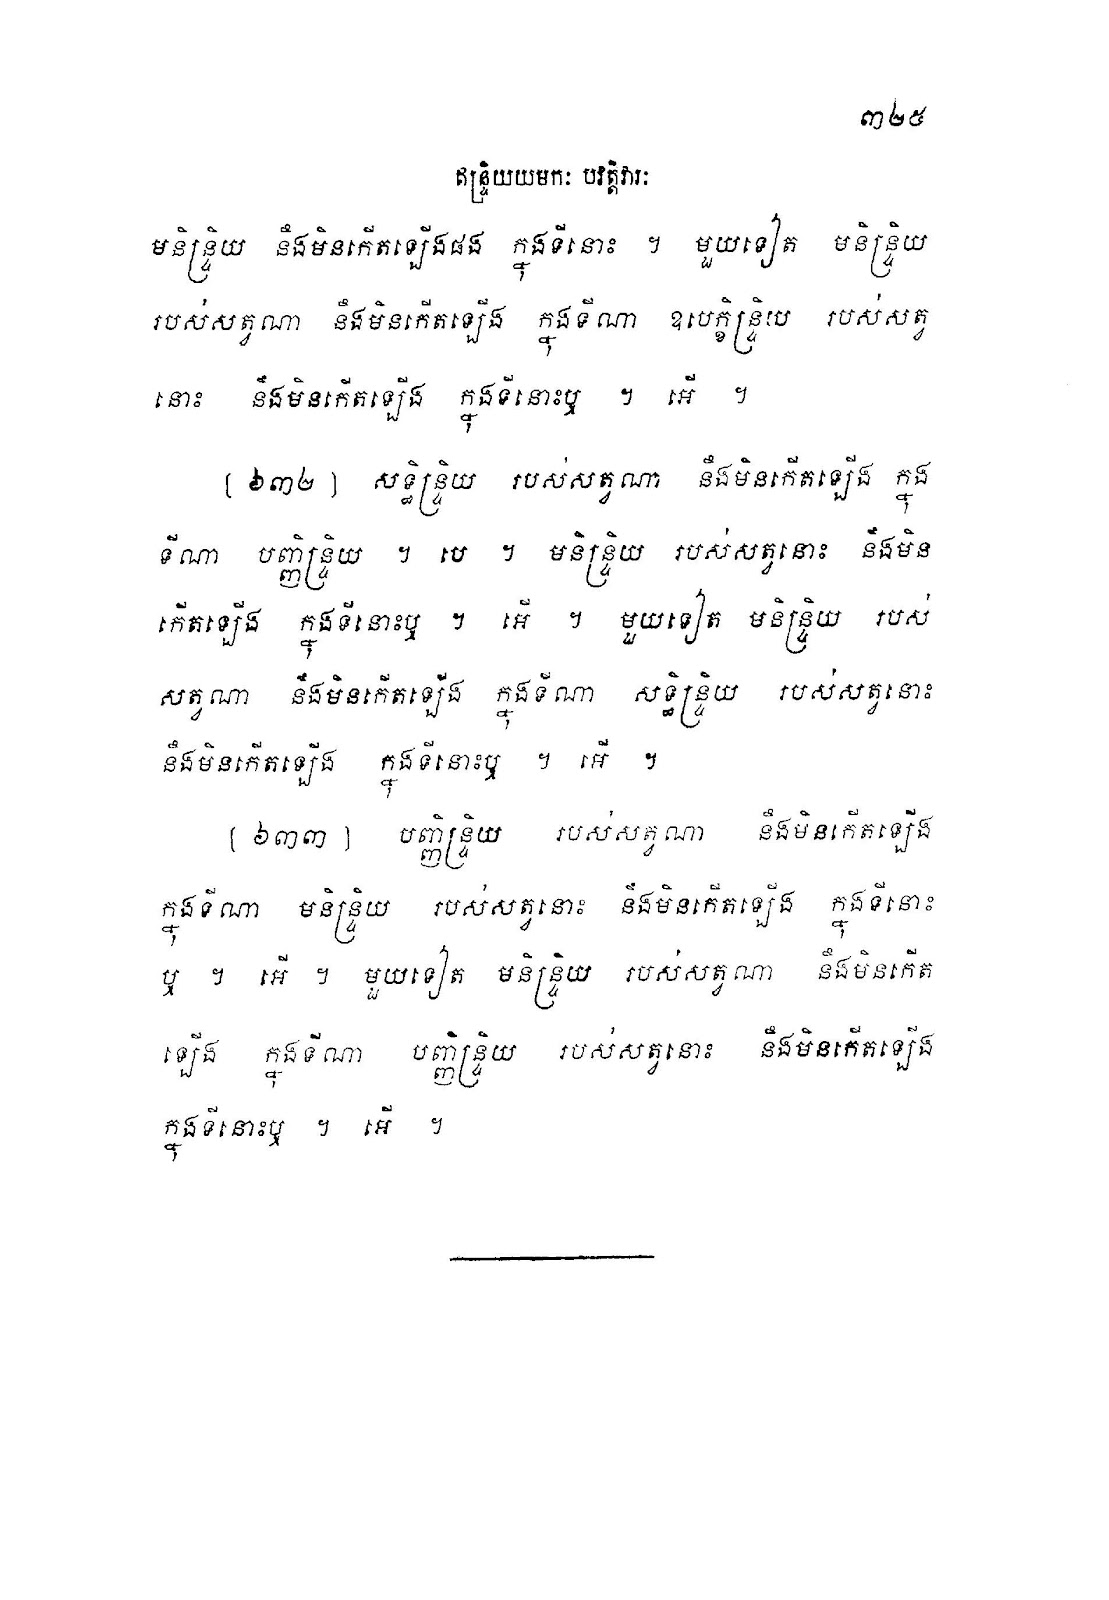 ៣២៥
ឥន្ទ្រិយយមកៈ បវត្តិវារៈ
មនិន្ទ្រិយ នឹងមិនកើតឡើងផង ក្នុងទីនោះ ។ មួយទៀត មនិន្ទ្រិយ
របស់សត្វណា នឹងមិនកើតឡើង ក្នុងទីណា ឧបេក្ខិន្ទ្រិយ របស់សត្វ
នោះ នឹងមិនកើតឡើង ក្នុងទីនោះឬ ។ អើ ។
(៦៣២) សទ្ធិន្ទ្រិយ របស់សត្វណា នឹងមិនកើតឡើង ក្នុង
ទីណា បញ្ញិន្ទ្រិយ ។ បេ ។ មនិន្ទ្រិយ របស់សត្វនោះ នឹងមិន
កើតឡើង ក្នុងទីនោះឬ ។ អើ ។ មួយទៀត មនិន្ទ្រិយ របស់
សត្វណា នឹងមិនកើតឡើង ក្នុងទីណា សទ្ធិន្ទ្រិយ របស់សត្វនោះ
នឹងមិនកើតឡើង ក្នុងទីនោះឬ ។ អើ ។
(៦៣៣) បញ្ញិន្ទ្រិយ របស់សត្វណា នឹងមិនកើតឡើង
ក្នុងទីណា មនិន្ទ្រិយ របស់សត្វនោះ នឹងមិនកើតឡើង ក្នុងទីនោះ
ឬ ។ អើ ។ មួយទៀត មនិន្ទ្រិយ របស់សត្វណា នឹងមិនកើត
ឡើង ក្នុងទីណា បញ្ញិន្ទ្រិយ របស់សត្វនោះ នឹងមិនកើតឡើង
ក្នុងទីនោះឬ ។ អើ ។